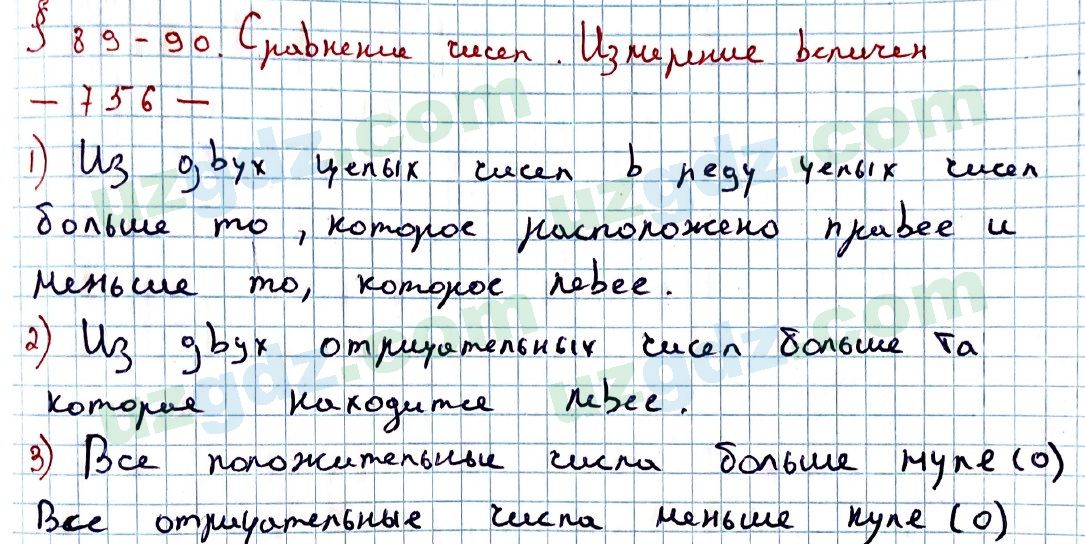 § 89-90. Сравнение чисел. Измерение величен
— 756 —
1) Из двух целых чисел в реду целых чисел
больше то, которое расположено правее и
меньше то, которое левее.
2) Из двух отрицательных чисел больше та
которая находится левее.
3) Все положительные числа больше нуле (0)
Все отрицательные числа меньше нуле (0)
uzgdz.com
uzgdz.com
uzgdz.com
uzgdz.com